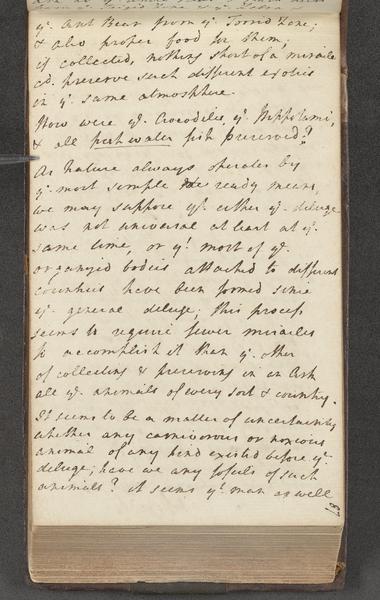 yᵉ. Ant Bear from yᵉ. Torrid Zone;
& also proper food for them;
if collected, nothing short of a miracle
cd. preserve such different exotics
in yᵉ. same atmosphere.
How were yᵉ. Crocodiles, yᵉ. Hippotami,
& all fresh water fish preserved?
As Nature always operates by
yᵉ. most simple & ready means,
we may suppose yᵗ. either yᵉ. deluge
was not universal at least at yᵉ.
same time, or yᵗ. most of yᵉ.
organized bodies attached to different
countries have been formed since
yᵉ. general deluge; this process
seems to require fewer miracles
to accomplish it than yᵉ. other
of collecting & preserving in an Ark
all yᵉ. animals of every sort & country.
It seems to be a matter of uncertainty
whether any carnivorous or noxious
animal of any kind existed before yᵉ.
deluge; have we any fossils of such
animals? it seems yᵗ. man as well